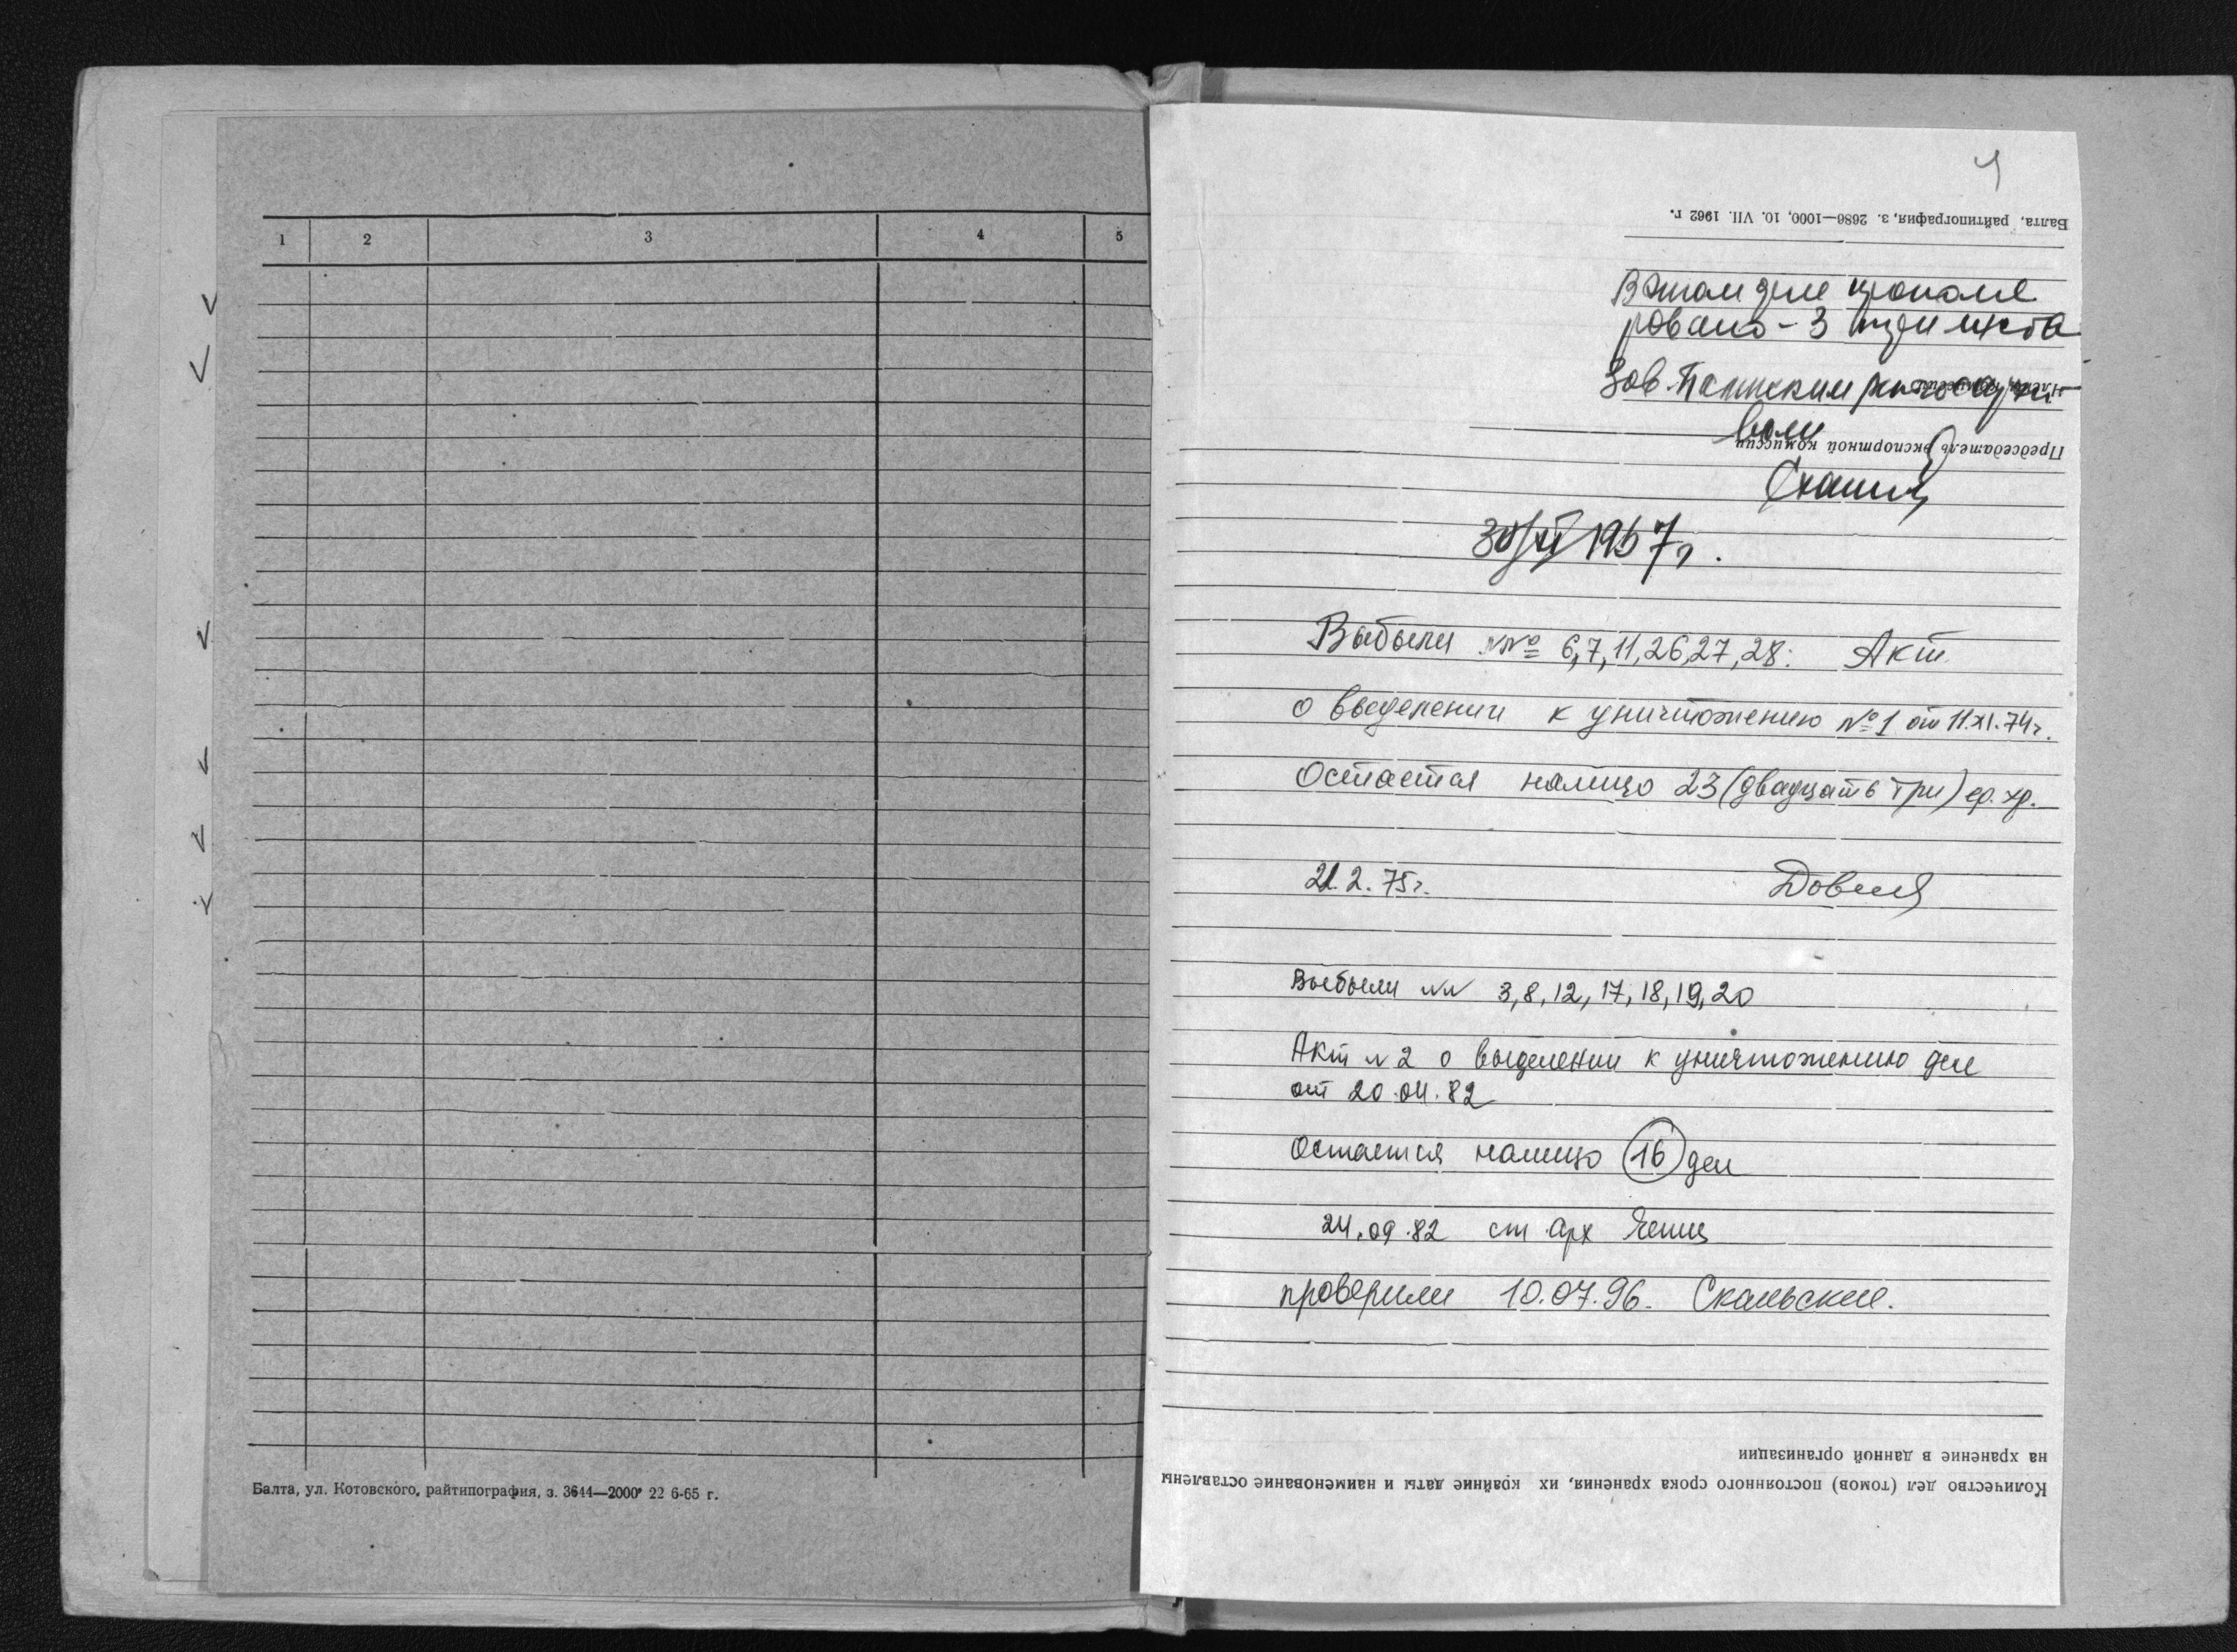 1 2 3 4 5
Балта, ул. Котовского, райтипография, з. 3644—2000 22 6-65 г.
4
Балта, райтипография, з. 2686—1000, 10. VII. 1962 г.
В этом деле пронуме
ровано - 3 три листа
Зав.
Члены комиссии
Председатель экспортной комиссии
1957 г.
Выбыли №№ 6,7,11,26,27,28. Акт
о выделении к уничтожению №1 от 11.XI.74г.
Остается налицо 23 (двадцать три) ед. хр.
21.2.75г. Довгия
Выбыли NN 3,8,12,17,18,19,20
Акт N 2 о выделении к уничтожению дел
от 20.04.82
Остается налицо 16 дел
24.09.82 ст арх
проверили 10.07.96. Скальские.
на хранение в данной организации
Количество дел (томов) постоянного срока хранения, их крайние даты и наименование оставлены